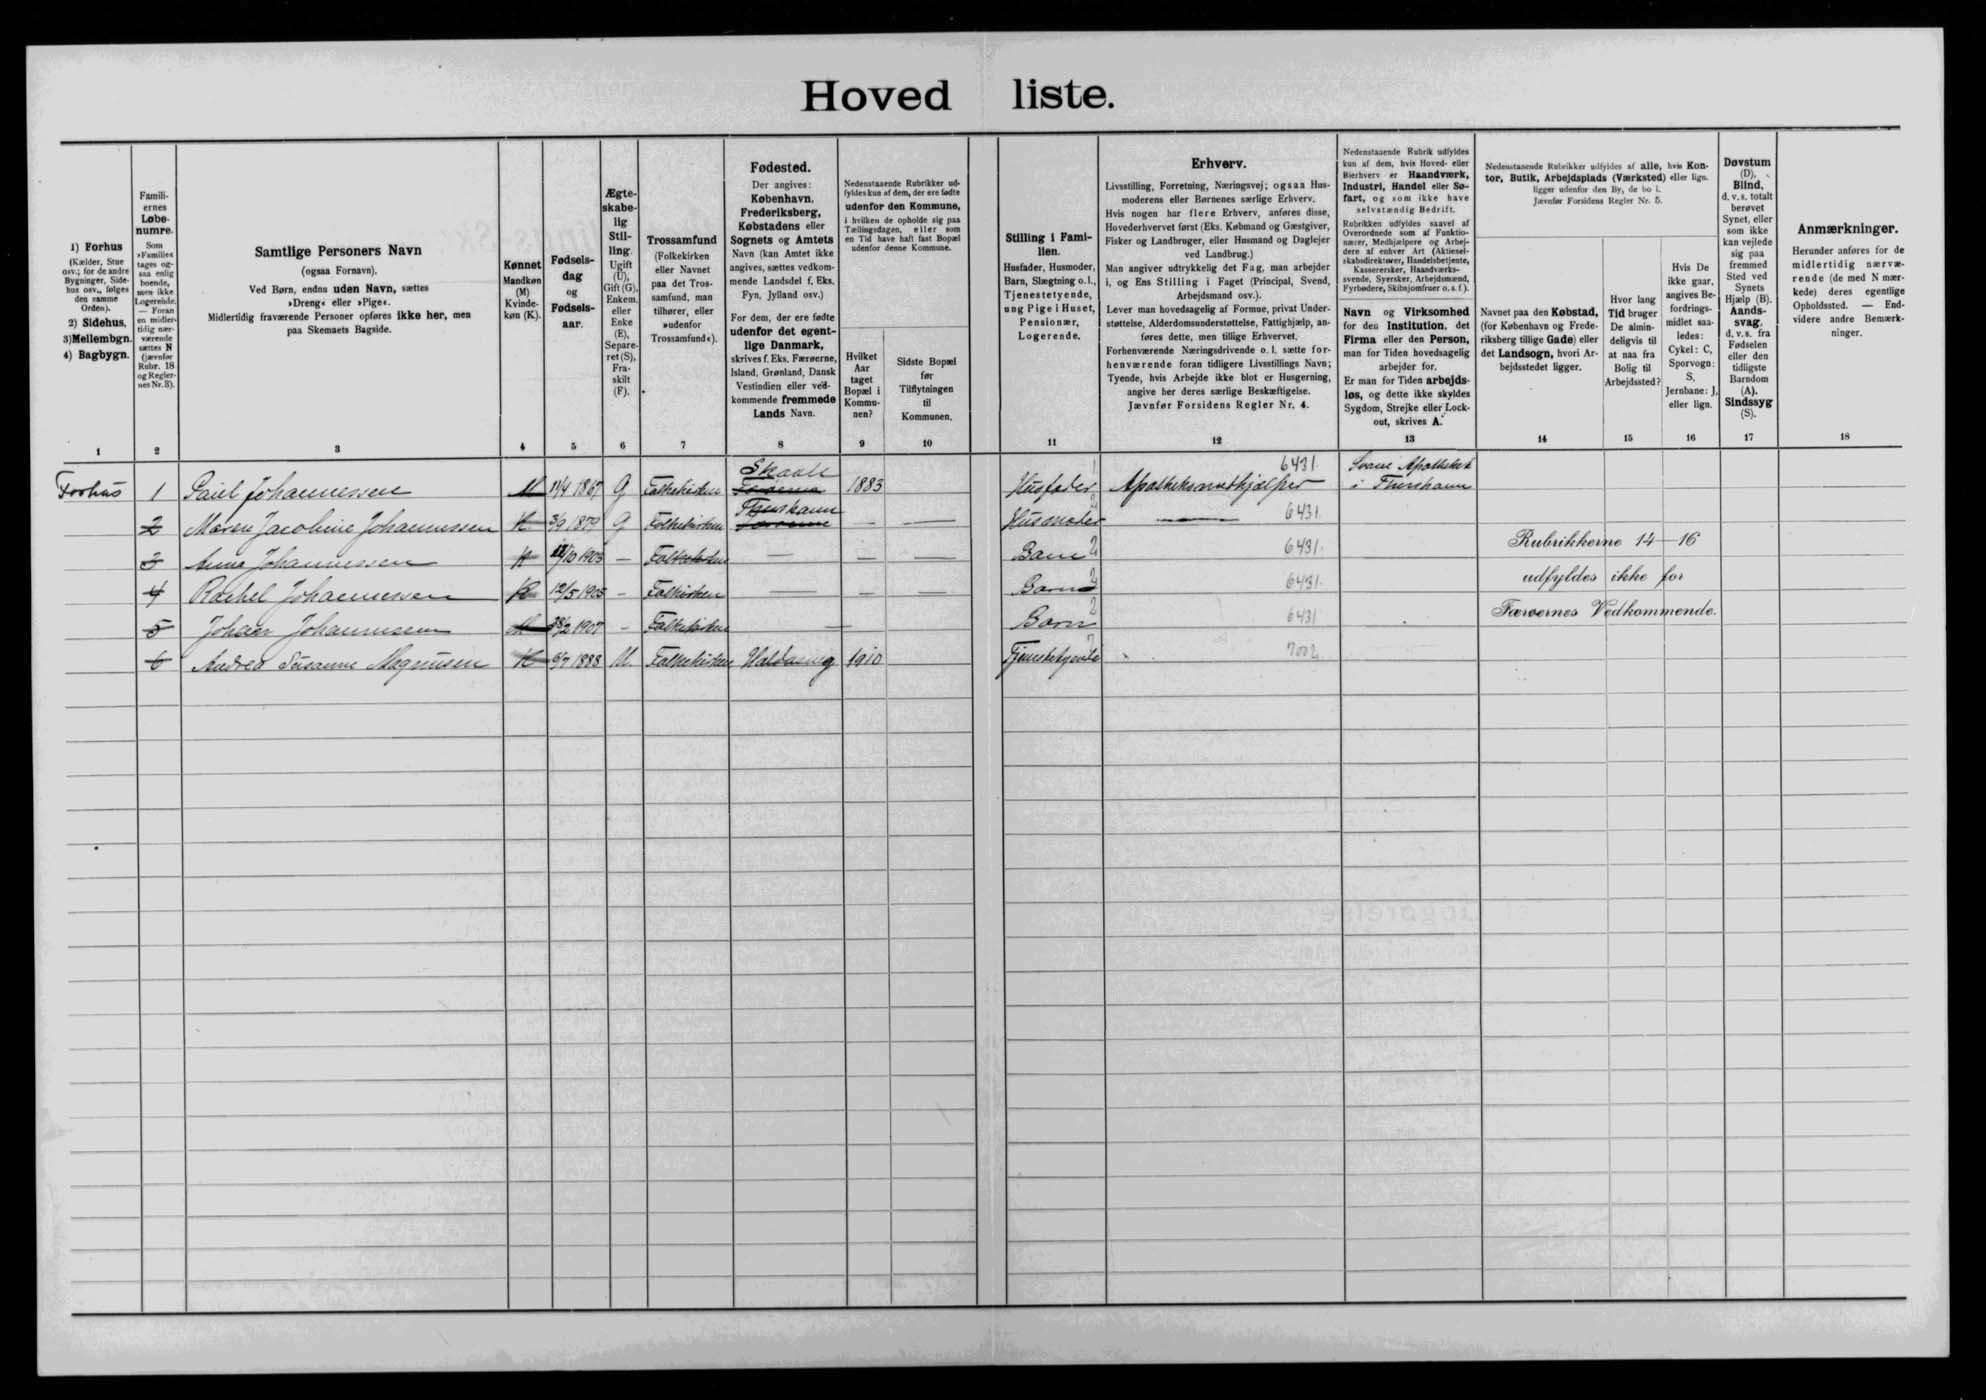 Hovedliste.
1) Forhus
(Kælder, Stue
osv.; for de andre
Bygninger, Side-
hus osv., følges
den samme
Orden).
2) Sidehus,
3) Mellembgn.
4) Bagbygn.
Famili-
ernes
Løbe-
numre.
Som
»Familie«
tages og-
saa enlig
boende,
men ikke
Logerende.
— Foran
en midler-
tidig nær-
værende
sættes N
(jævnfør
Rubr. 18
og Regler-
nes Nr. 3).
Samtlige Personers Navn
(ogsaa Fornavn).
Ved Børn, endnu uden Navn, sættes
»Dreng« eller »Pige«.
Midlertidig fraværende Personer opføres ikke her, men
paa Skemaets Bagside.
Kønnet
Mandkøn
(M)
Kvinde-
køn (K).
Fødsels-
dag
og
Fødsels-
aar.
Ægte-
skabe-
lig
Stil-
ling.
Ugift
(U),
Gift (G),
Enkem.
eller
Enke
(E),
Separe-
ret (S),
Fra-
skilt
(F).
Trossamfund
(Folkekirken
eller Navnet
paa det Tros-
samfund, man
tilhører, eller
»udenfor
Trossamfund«).
Fødested.
Der angives:
København,
Frederiksberg,
Købstadens eller
Sognets og Amtets
Navn (kan Amtet ikke
angives, sættes vedkom-
mende Landsdel f. Eks.
Fyn, Jylland osv.)
For dem, der ere fødte
udenfor det egent-
lige Danmark,
skrives f. Eks. Færøerne,
Island, Grønland, Dansk
Vestindien eller ved-
kommende fremmede
Lands Navn.
Nedenstaaende Rubrikker ud-
fyldes kun af dem, der ere fødte
udenfor den Kommune,
i hvilken de opholde sig paa
Tællingsdagen, eller som
en Tid have haft fast Bopæl
udenfor denne Kommune.
Hvilket
Aar
taget
Bopæl i
Kommu-
nen?
Sidste Bopæl
før
Tilflytningen
til
Kommunen.
Stilling i Fami-
lien.
Husfader, Husmoder,
Barn, Slægtning o. l.,
Tjenestetyende,
ung Pige i Huset,
Pensionær,
Logerende.
Erhverv.
Livsstilling, Forretning, Næringsvej; ogsaa Hus-
moderens eller Børnenes særlige Erhverv.
Hvis nogen har flere Erhverv, anføres disse,
Hovederhvervet først (Eks. Købmand og Gæstgiver,
Fisker og Landbruger, eller Husmand og Daglejer
ved Landbrug.)
Man angiver udtrykkelig det Fag, man arbejder
i, og Ens Stilling i Faget (Principal, Svend,
Arbejdsmand osv.).
Lever man hovedsagelig af Formue, privat Under-
støttelse, Alderdomsunderstøttelse, Fattighjælp, an-
føres dette, men tillige Erhvervet.
Forhenværende Næringsdrivende o. l. sætte for-
henværende foran tidligere Livsstillings Navn;
Tyende, hvis Arbejde ikke blot er Husgerning,
angive her deres særlige Beskæftigelse.
Jævnfør Forsidens Regler Nr. 4.
Nedenstaaende Rubrik udfyldes
kun af dem, hvis Hoved- eller
Bierhverv er Haandværk,
Industri, Handel eller Sø-
fart, og som ikke have
selvstændig Bedrift.
Rubrikken udfyldes saavel af
Overordnede som af Funktio-
nærer, Medhjælpere og Arbej-
dere af enhver Art (Aktiesel-
skabsdirektører, Handelsbetjente,
Kassererske, Haandværks-
svende, Syersker, Arbejdsmænd,
Fyrbødere, Skibsjomfruer o. s. f.).
Navn og Virksomhed
for den Institution, det
Firma eller den Person,
man for Tiden hovedsagelig
arbejder for.
Er man for Tiden arbejds-
løs, og dette ikke skyldes
Sygdom, Strejke eller Lock-
out, skrives A.
Nedenstaaende Rubrikker udfyldes af alle, hvis Kon-
tor, Butik, Arbejdsplads (Værksted) eller lign.
ligger udenfor den By, de bo i.
Jævnfør Forsidens Regler Nr. 5.
Navnet paa den Købstad,
(for København og Frede-
riksberg tillige Gade) eller
det Landsogn, hvori Ar-
bejdsstedet ligger.
Hvor lang
Tid bruger
De almin-
deligvis til
at naa fra
Bolig til
Arbejdssted?
Hvis De
ikke gaar,
angives Be-
fordrings-
midlet saa-
ledes:
Cykel: C,
Sporvogn:
S,
Jernbane: J,
eller lign.
Døvstum
(D),
Blind,
d. v. s. totalt
berøvet
Synet, eller
som ikke
kan vejlede
sig paa
fremmed
Sted ved
Synets
Hjælp (B).
Aands-
svag,
d. v. s. fra
Fødselen
eller den
tidligste
Barndom
(A).
Sindssyg
(S).
Anmærkninger.
Herunder anføres for de
midlertidig nærvæ-
rende (de med N mær-
kede) deres egentlige
Opholdssted. — End-
videre andre Bemærk-
ninger.
1 2 3 4 5 6 7 8 9 10 11 12 13 14 15 16 17 18
Skaale 6431. Svane Apotheket
Forhus 1 Paul Johannessen M 11/4 1867 G Folkekirken Færøerne 1883 — Husfader 1 Apotheksmedhjælper i Thorshavn
Thorshavn
2 Maren Jacobine Johannessen K 3/9 1879 G Folkekirken Færøerne — — Husmoder 2 — 6431.
3 Anna Johannessen K 11/10 1903 — Folkekirken — — — Barn 2 6431. Rubrikkerne 14—16
4 Rachel Johannessen K 12/5 1905 — Folkirken — — — Barn 2 6431. udfyldes ikke for
5 Johan Johannessen M 28/2 1907 — Folkekirken — Barn 2 6431 Færøernes Vedkommende.
6 Andrea Susanne Magnusen K 6/7 1888 U. Folkekirken Haldarsvig 1910 Tjenestetyende 7002.